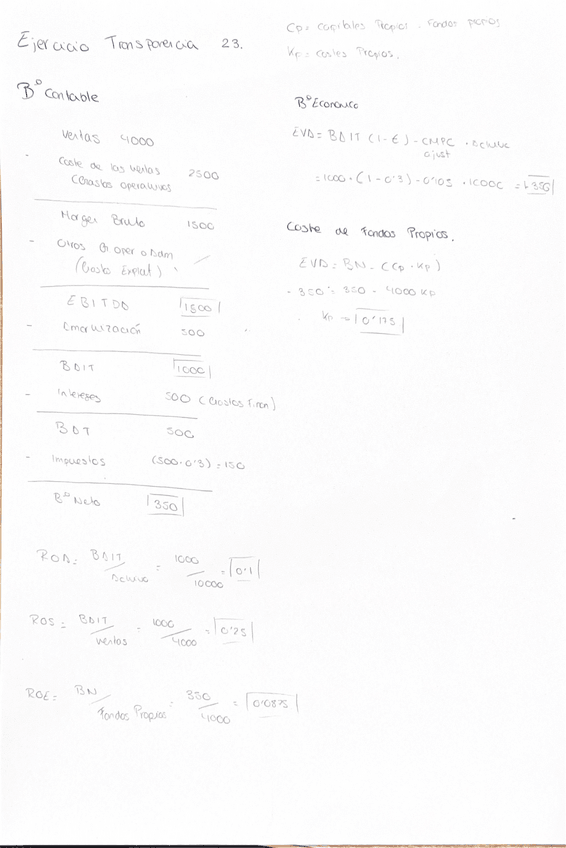 Ejercicio Transparencia 23.
Cp = Capitales Propios. Fondos propios
Kp = Costes Propios.
Bº Contable
Ventas 4000
- Coste de las ventas 2500
(Gastos operativos)
Margen Bruto 1500
- Otros G oper o Dam
(Gasto Explot)
EBITDA 1500
- Amortización 500
BAIT 1000
- Intereses 500 (Gastos Finan)
BAT 500
- Impuestos (500·0'3) = 150
Bº Neto 350
ROA = BAIT / Activo = 1000 / 10000 = 0'1
ROS = BAIT / Ventas = 1000 / 4000 = 0'25
ROE = BN / Fondos Propios = 350 / 4000 = 0'0875
Bº Economico
EVA = BAIT (1-t) - CMPC · Activo
ajust
= 1000 · (1-0'3) - 0'105 · 10000 = -350
Coste de Fondos Propios.
EVA = BN - (Cp · Kp)
- 350 = 350 - 4000 Kp
Kp = 0'175